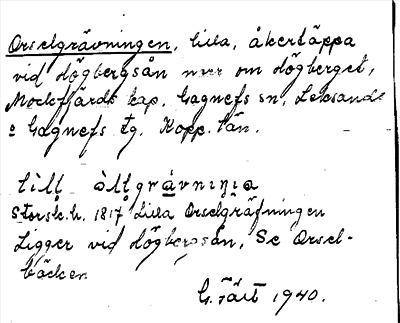 Orselgrävningen, lilla, åkertäppa
vid Högbergsån nerr om Högberget,
Mockfjärds kap. Gagnefs sn, Leksands
o Gagnefs tg. Kopp. län.
lìll òḷtgrävniŋ̣ia
Storsk.h. 1817 Lilla Orselgräfningen
Ligger vid Högbergsån, Se Orsel-
bäcken
G. Täll 1940.